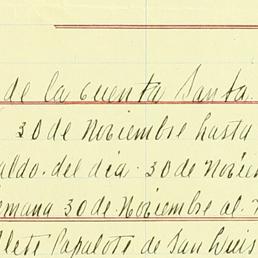 de la cuenta Santa
30 de Noviembre hasta
aldo. del dia. 30 de Noviem
emana 30 de Noviembre al
flete Papalote de San Luis